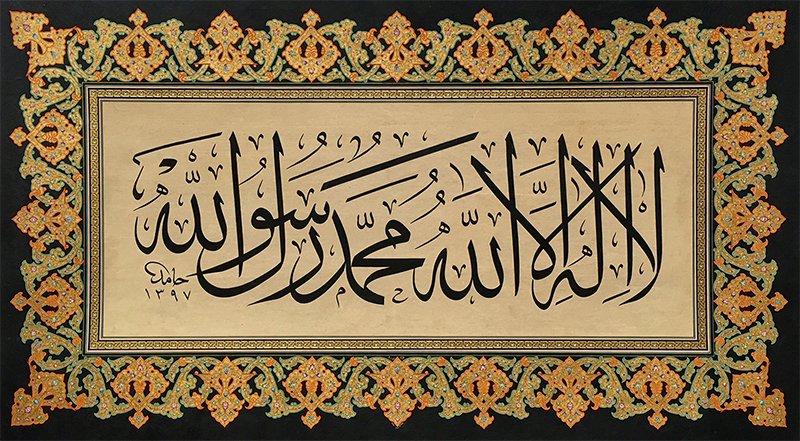 لا اله الا الله محمد رسول الله
حامد
١٣٩٧